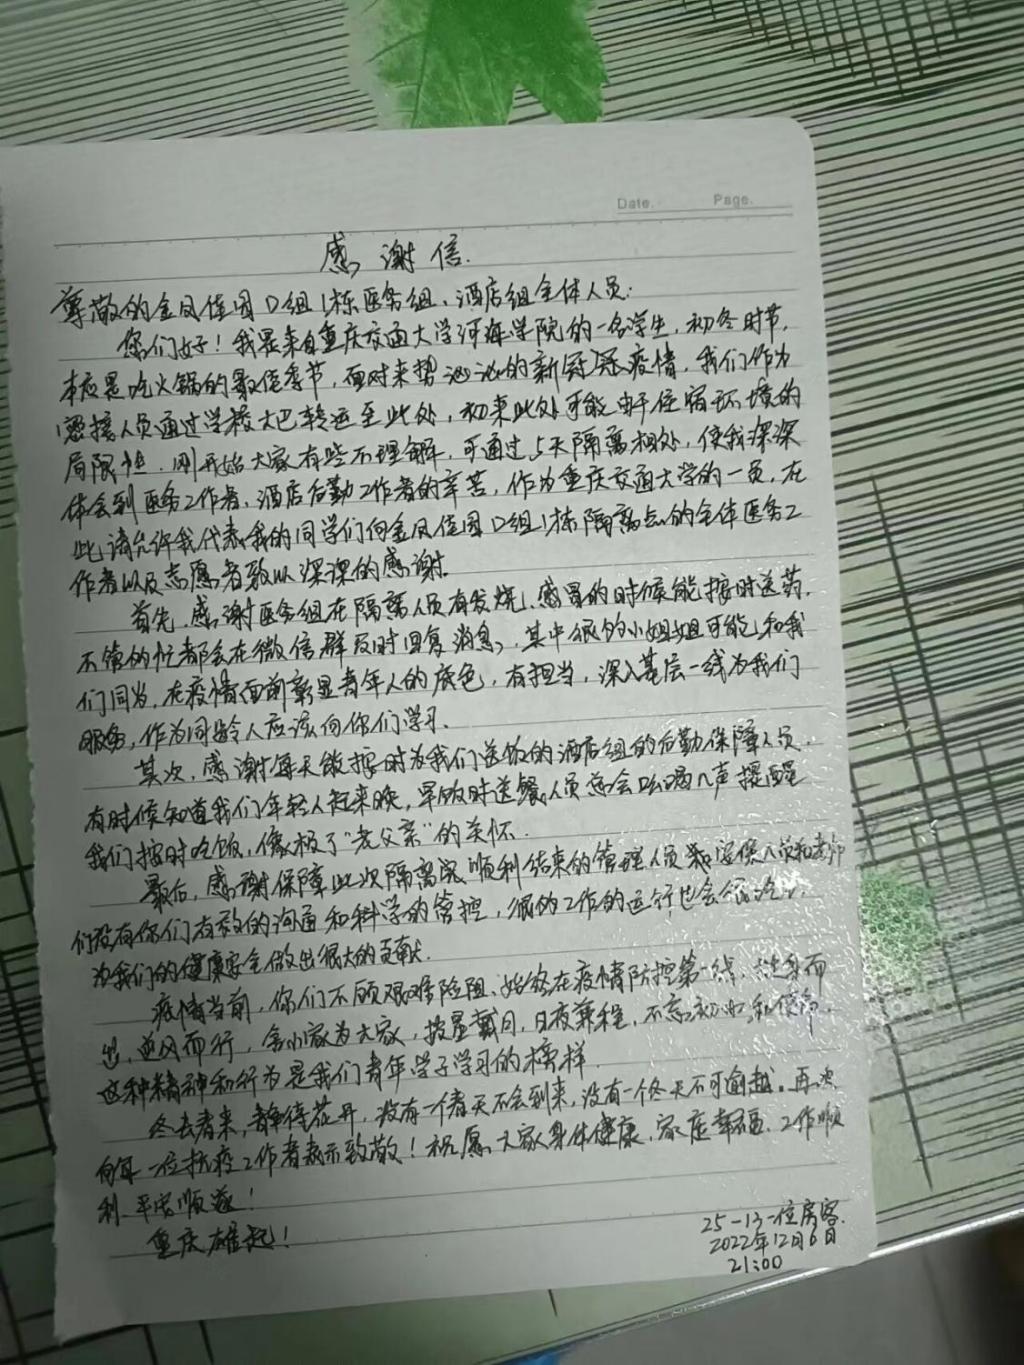 Date. Page.
感谢信.
尊敬的金凤佳园D组1栋医务组、酒店组全体人员:
你们好!我是来自重庆交通大学河海学院的一名学生,初冬时节,
本应是吃火锅的最佳季节,面对来势汹汹的新冠疫情,我们作为
密接人员通过学校大巴转运至此处,初来此处可能由于住宿环境的
局限性,刚开始大家有些不理解,可通过5天隔离相处,使我深深
体会到医务工作者、酒店后勤工作者的辛苦,作为重庆交通大学的一员,在
此请允许我代表我的同学们向金凤佳园D组1栋隔离点的全体医务工
作者以及志愿者致以深深的感谢.
首先,感谢医务组在隔离人员有发烧、感冒的时候能按时送药,
不管多忙都会在微信群及时回复消息,其中很多小姐姐可能和我
们同岁,在疫情面前彰显青年人的底色,有担当,深入基层一线为我们
服务,作为同龄人应该向你们学习.
其次,感谢每天能按时为我们送饭的酒店组的后勤保障人员,
有时候知道我们年轻人起来晚,早饭时送餐人员总会吆喝几声提醒
我们按时吃饭,像极了“老父亲”的关怀.
最后,感谢保障此次隔离完顺利结束的管理人员和安保人员和老师
们没有你们有效的沟通和科学的管控,很多工作的运行也会
为我们的健康安全做出很大的贡献.
疫情当前,你们不顾艰难险阻,始终在疫情防控第一线,挺身而
出,逆风而行,舍小家为大家,披星戴月,日夜兼程,不忘初心和使命,
这种精神和行为是我们青年学子学习的榜样.
冬去春来,静待花开,没有一个春天不会到来,没有一个冬天不可逾越。再次
向每一位抗疫工作者表示致敬!祝愿大家身体健康,家庭幸福,工作顺
利,平安顺遂!
重庆雄起!
25-13-住房客.
2022年12月6日
21:00